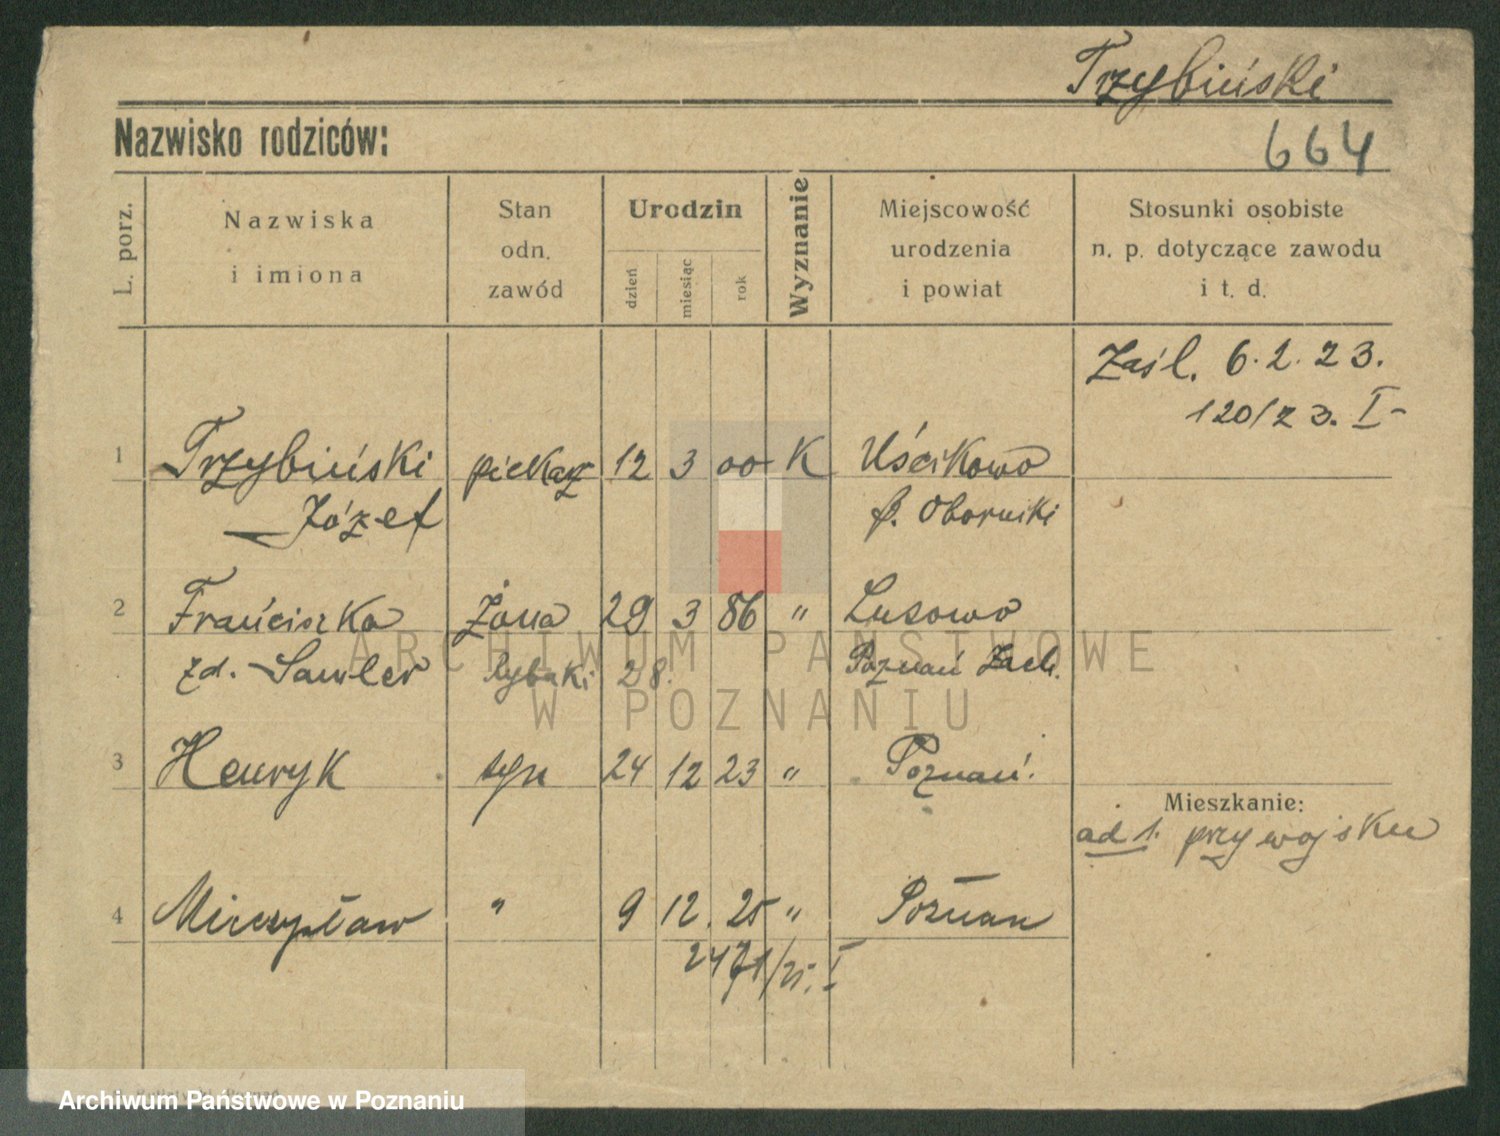 Trzybiński
Nazwisko rodziców:
664
L. porz.
Nazwiska
i imiona
Stan
odn.
zawód
Urodzin
dzień
miesiąc
rok
Wyznanie
Miejscowość
urodzenia
i powiat
Stosunki osobiste
n. p. dotyczące zawodu
i t. d.
Zaśl. 6.2.23.
120/23. I-
1 Trzybiński piekarz 12 3 00 K Uścikowo
Józef p. Oborniki
2 Franciszka Żona 29 3 86 " Lusowo
zd. Rybaki 28. Poznań Zach.
ARCHIWUM PAŃSTWOWE
W POZNANIU
3 Henryk syn 24 12 23 " Poznań.
Mieszkanie:
ad 1. przy wojsku
4 Mieczysław " 9 12. 25 " Poznań
2471/25. I
Archiwum Państwowe w Poznaniu